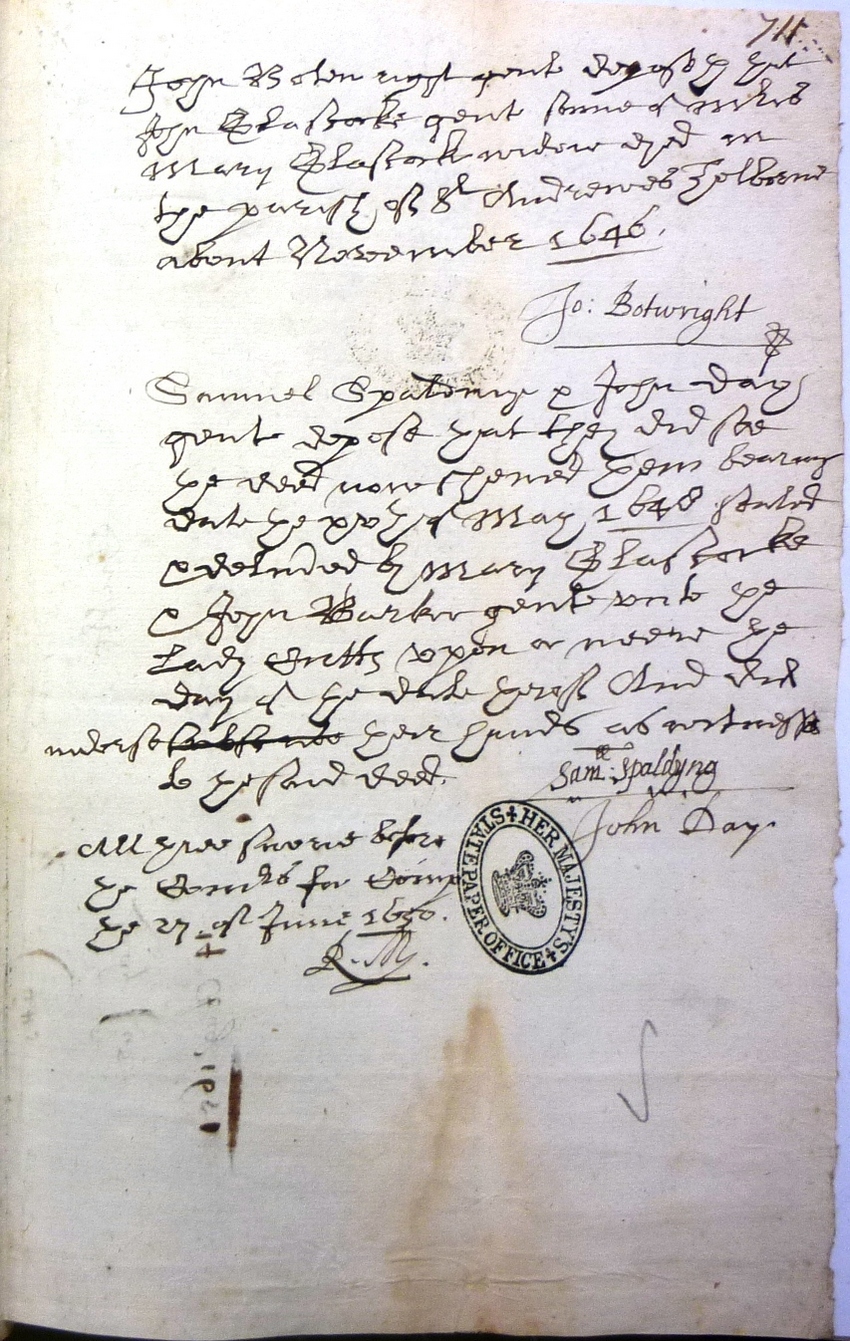 711
John Botewright gent deposeth yat
John Glascocke gent sonne of
Mary Glascock widow dyed in
the parish of St Andrewes Holborne
about November 1646.
Jo: Botwright
Samuel Spaldinge & John Day
gente depose yat they did see
ye deed now shewed them bearing
date ye xvth of May 1648 sealed
& delivered by Mary Glascocke
& John Barker gent unto ye
Lady upon or neere ye
day of ye date hereof And did
underset their hands as witnesses
to ye said deed.
Sam: Spaldyng
John Day
All three sworne before
ye Comrs for Comp
ye 27 of June 1650.
R. M.
HER MAJESTY'S STATE PAPER OFFICE